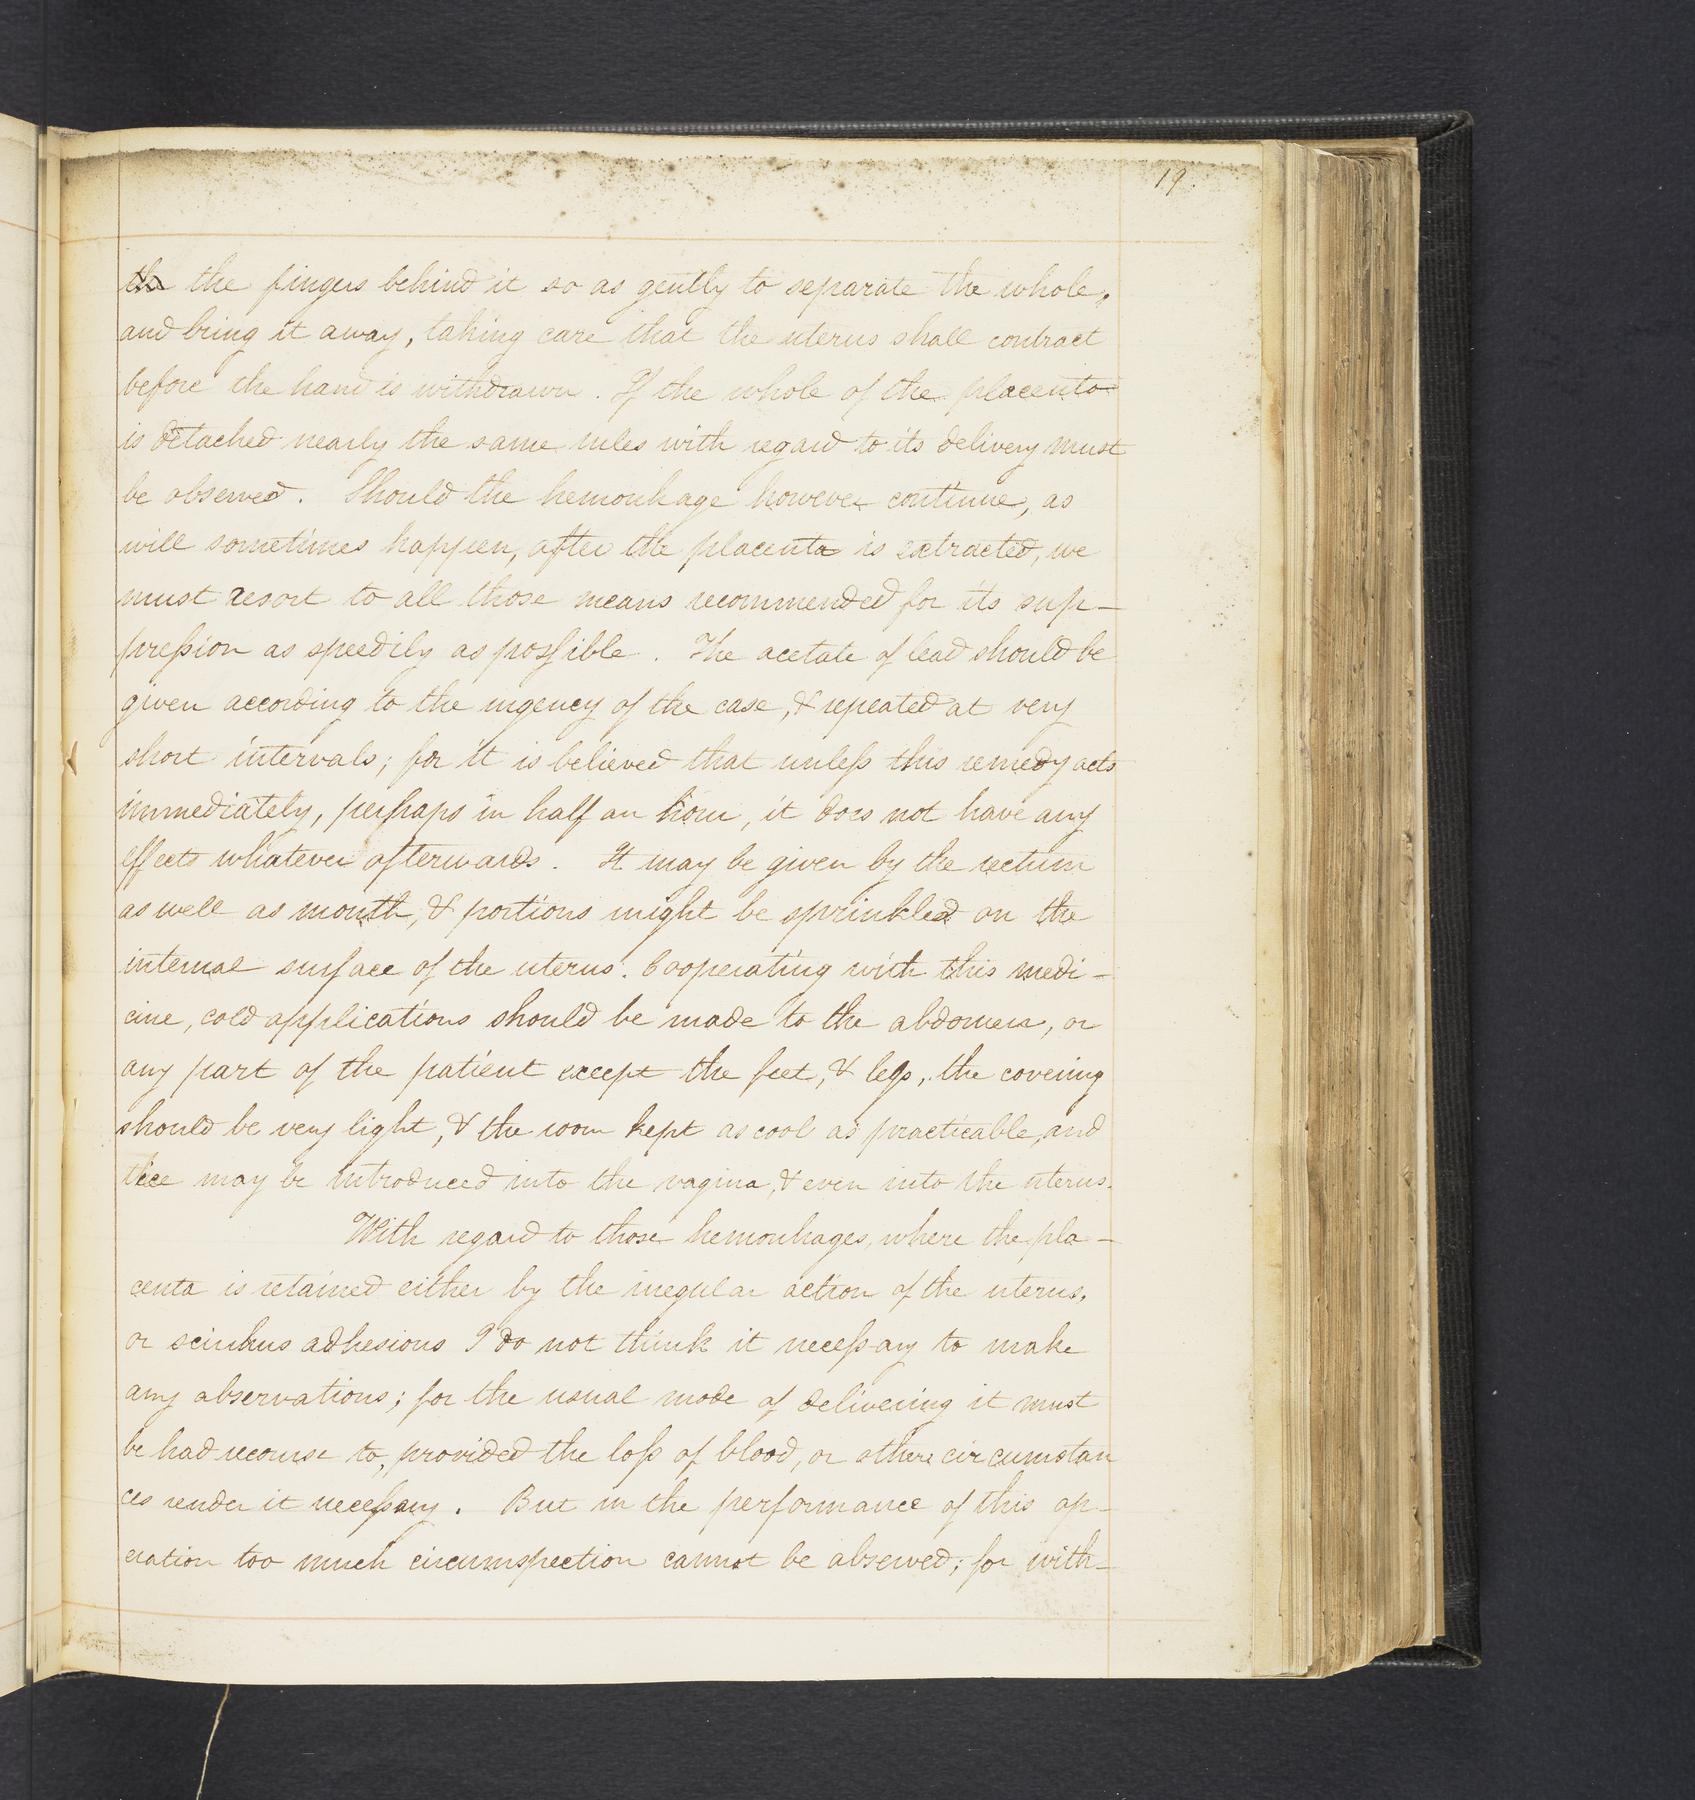 19.
the the fingers behind it so as gently to separate the whole,
and bring it away, taking care that the uterus shall contract
before the hand is withdrawn. If the whole of the placenta
is detached nearly the same rules with regard to its delivery must
be observed. Should the hemorrhage however continue, as
will sometimes happen, after the placenta is extracted, we
must resort to all those means recommended for its sup-
pression as speedily as possible. The acetate of lead should be
given according to the urgency of the case, & repeated at very
short intervals; for it is believed that unless this remedy acts
immediately, perhaps in half an hour, it does not have any
effects whatever afterwards. It may be given by the rectum
as well as mouth, & portions might be sprinkled on the
internal surface of the uterus. Cooperating with this medi-
cine, cold applications should be made to the abdomen, or
any part of the patient except the feet, & legs, the covering
should be very light, & the room kept as cool as practicable, and
ice may be introduced into the vagina, & even into the uterus.
With regard to those hemorrhages, where the pla-
centa is retained either by the iregular action of the uterus,
or adhesions I do not think it necessary to make
any observations; for the usual mode of delivering it must
be had recourse to, provided the loss of blood, or other circumstan
ces render it necessary. But in the performance of this op-
eration too much circumspection cannot be observed; for with-